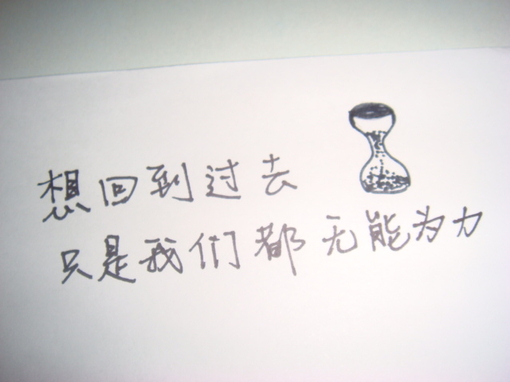 想回到过去
只是我们都无能为力